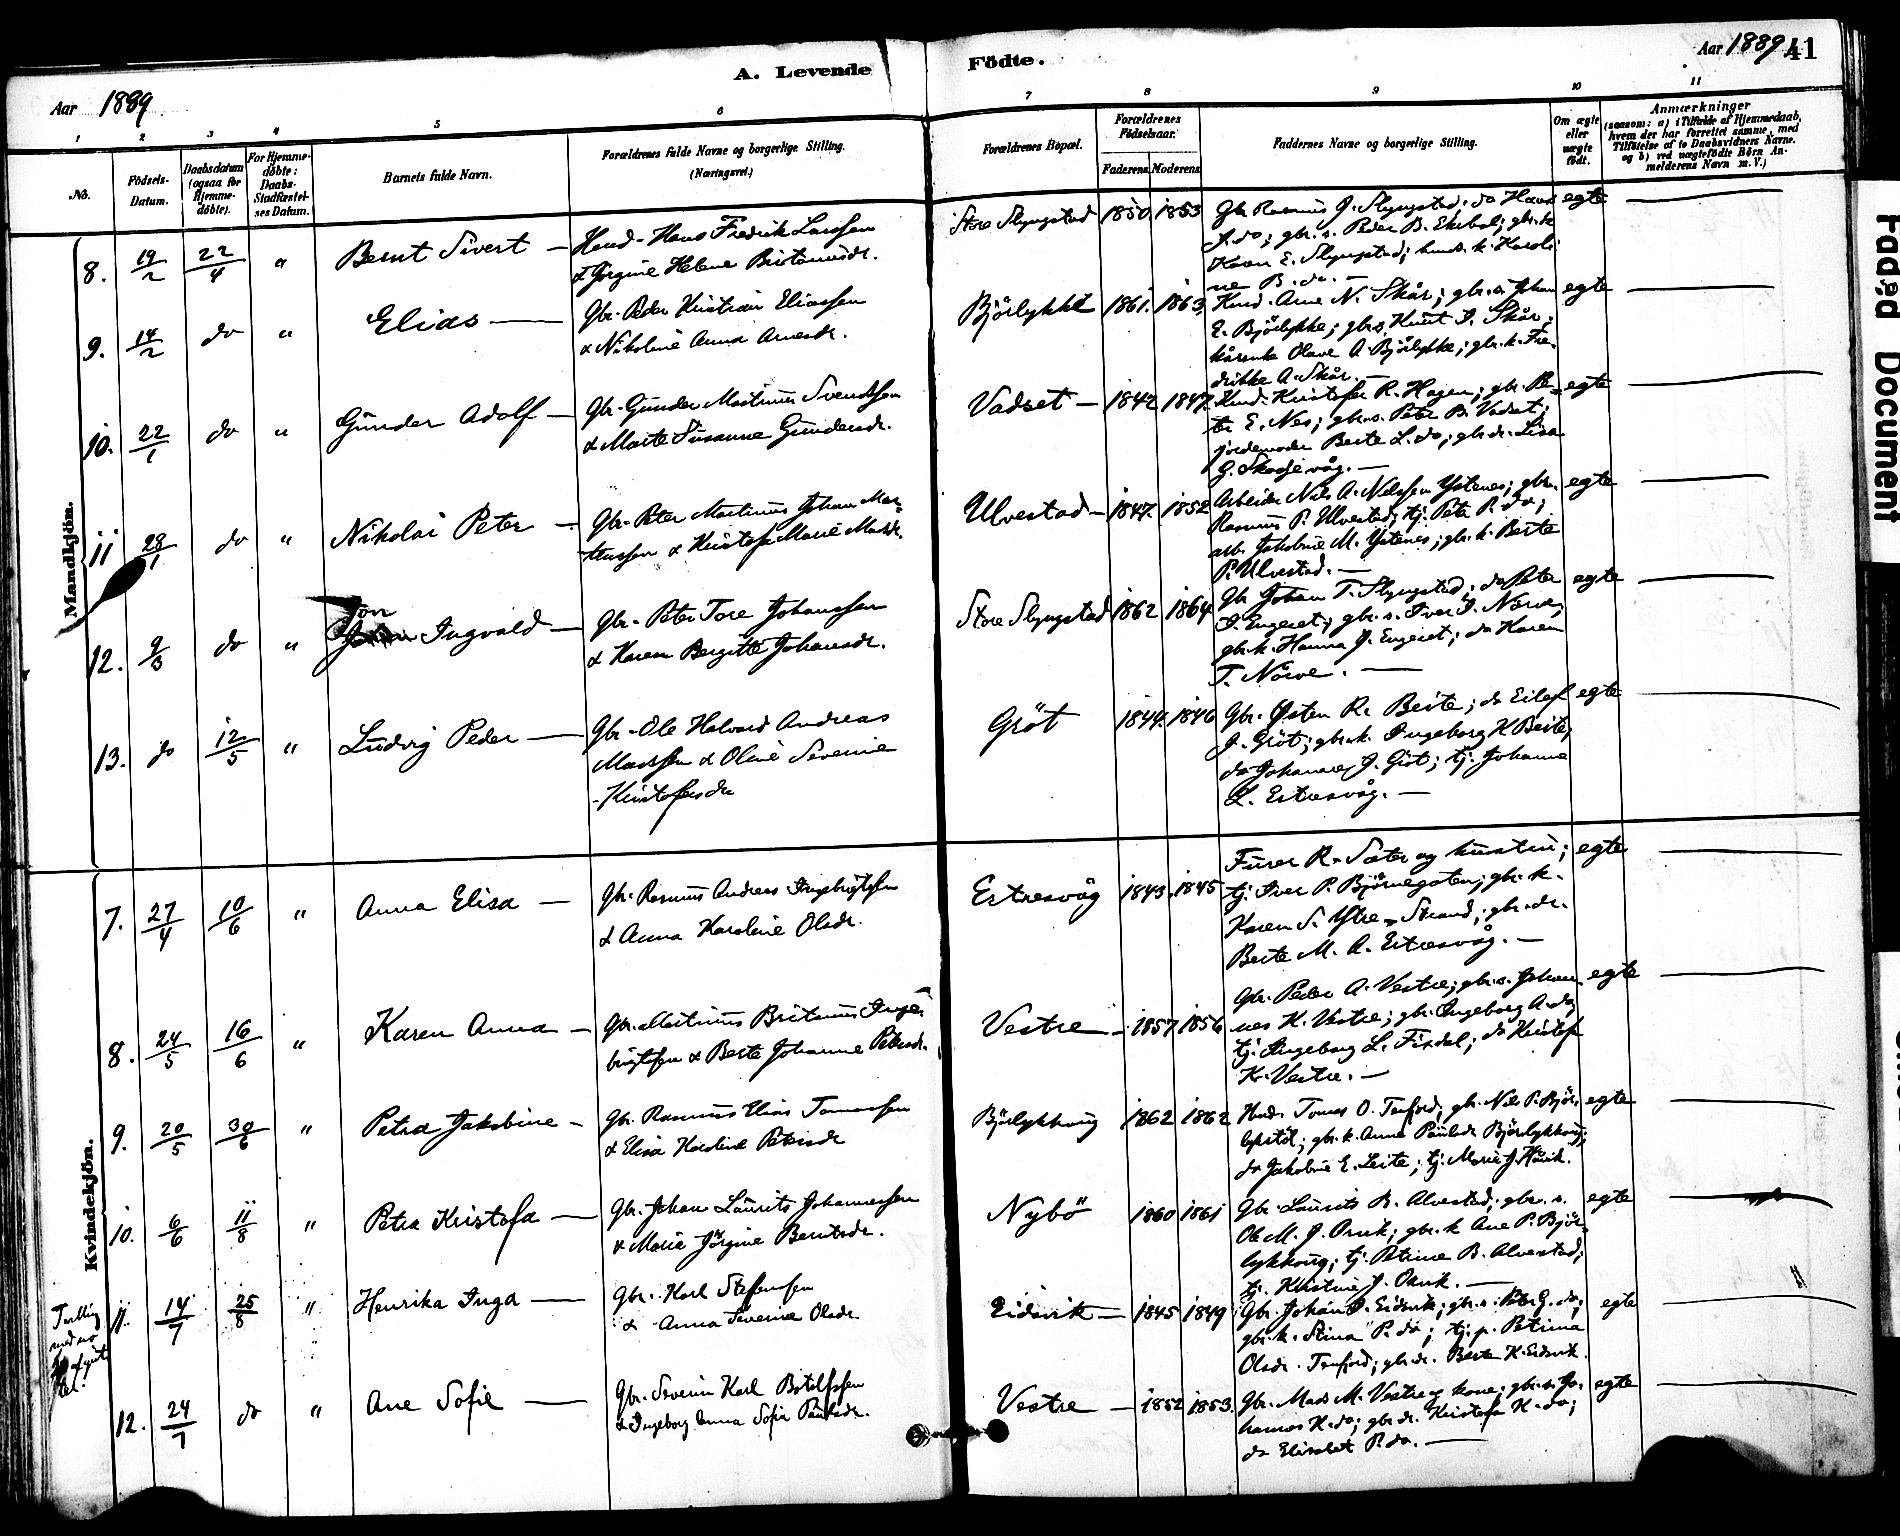 Aar 1889
A. Levende
Födte.
Aar 1889 41
1 2 3 4 5 6 7 8 9 10 11
No.
Födsels-
Datum.
Daabsdatum
(ogsaa for
Hjemme-
döbte).
For Hjemme-
döbte:
Daabs-
Stadfæstel-
ses Datum.
Barnets fulde Navn.
Forældrenes fulde Navne og borgerlige Stilling.
(Næringsvei.)
Forældrenes Bopæl.
Forældrenes
Födselsaar.
Faderens Moderens
Faddernes Navne og borgerlige Stilling.
Om ægte
eller
uægte
födt.
Anmærkninger
(saasom: a) i Tilfælde af Hjemmedaab,
hvem der har forrettet samme, med
Tilföielse af to Daabsvidners Navne.
og b) ved uægtefödte Börn An-
melderens Navn m. V.)
Mandkjön.
8. 19/2 22/4 " Bernt Sivert — Husmd. Hans Fredrik Larssen
& Jörgine Helene Bertinusdr.
Store Slyngstad 1850 1853 Gbr. Rasmus J. Slyngstad; do Hans
J. do; gbr. s. Peder B. Ekrbol; gbr. k.
Karen E. Slyngstad; husm. k. Karoli-
ne B. do. — egte —
9. 14/2 do " Elias — Gbr. Peder Kristian Eliassen
& Nikoline Anna Arnesdr.
Björlykke 1861. 1863. Husmd. Arne N. Skår; gbr. s. Johan
E. Björlykke; gbr. s. Knut J. Skår;
kårenke Olave A. Björlykke; gbr. k. Fre-
drikke A. Skår. — egte —
10. 22/1 do " Gunder Adolf — Gbr. Gunder Martinus Svendsen
& Marte Susanne Gundersdr.
Vadset — 1842 1847. Husmd. Kristofer R. Hagen; gbr. Pe-
ter E. Nes; gbr. s. Peter B. Vadset;
jordemoder Berte L. do; gbr. dr. Lisa
G. Skodjevåg. — egte —
11 28/1 do " Nikolai Peter — Gbr. Peter Martinus Johan Mar-
tinussen & Kristofa Marie Madsdr.
Ulvestad — 1847. 1852 Arbeider Nils A. Nilssen Ystenes; gbr.
Rasmus P. Ulvestad; tj. Peter P. do;
arb. Jakobine M. Ystenes; gbr. k. Berte
P. Ulvestad. — egte —
12. 9/3 do " Jon Ingvald — Gbr. Peter Tore Johanssen
& Karen Bergitte Johansdr.
Store Slyngstad 1862 1864 Gbr. Johan T. Slyngstad; do Peter
J. Engeset; gbr. s. Iver J. Nörve,
gbr. k. Hanna J. Engeset; do Karen
T. Nörve. — egte —
13. do 12/5 " Ludvig Peder — Gbr. Ole Halvard Andreas
Madssen & Oline Severine
Kristofersdr
Gröt 1844. 1846 Gbr. Østen R. Beite; do Eilef
J. Gröt; gbr. k. Ingeborg K. Beite;
do Johanne J. Gröt; tj. Johanne
L. Ertresvåg. — egte —
Kvindekjön.
7. 27/4 10/6 " Anna Elisa — Gbr. Rasmus Andreas Ingebrigtsen
& Anna Karoline Olsdr.
Ertresvåg 1843. 1845 R. Sæter og hustru;
tj. Iver P. Björnegaten; gbr. k.
Karen S. Ytre-Strand; gbr. dr.
Berte M. A. Ertresvåg. — egte —
8. 24/5 16/6 " Karen Anna — Gbr. Martinus Bertinus Inge-
brigtsen & Berte Johanne Petersdr.
Vestre — 1857 1856 Gbr. Peder A. Vestre; gbr. s. Johan-
nes K. Vestre; gbr. Ingeborg A. do;
tj. Ingeborg L. Fisdal; do Kristofa
K. Vestre. — egte —
9. 20/5 30/6 " Petra Jakobine — Gbr. Rasmus Elias Tomassen
& Elisa Karoline Petersdr
Björlykhaug 1862 1862 Husmd. Tomas O. Tenfjord, gbr. Nils P. Björ-
lykstöl; gbr. k. Anna Paulsdr. Björlykhaug;
do Jakobine E. Leite; tj. Marie J. Håvik. egte —
10. 6/6 11/8 " Petra Kristofa — Gbr. Johan Laurits Johannessen
& Marie Jörgine Berntsdr.
Nybö 1860 1861 Gbr. Laurits B. Alvestad; gbr. s.
Ole M. J. Orvik; gbr. k. Ane P. Björ-
lykhaug; tj. Petrine B. Alvestad;
tj. Kristine J. Orvik. — egte —
11. 14/7 25/8 " Henrika Inga — Gbr. Karl Steffensen
& Anna Severine Olsdr
Eidsvik — 1845 1849 Gbr. Johan J. Eidsvik; gbr. s. Peter G. do;
gbr. k. Stina P. do; tj. p. Petrina
Olsdr. Tenfjord; gbr. dr. Berte K. Eidsvik. egte —
Tvilling
12. 24/7 do " Ane Sofie — Gbr. Severin Karl Botolfssen
& Ingeborg Anna Sofie Paulsdr.
Vestre — 1852 1853. Gbr. Mads M. Vestre og kone; gbr. s. Jo-
hannes K. do; gbr. dr. Kristofa K. do;
do Elisabet P. do. — egte —
Faded Document